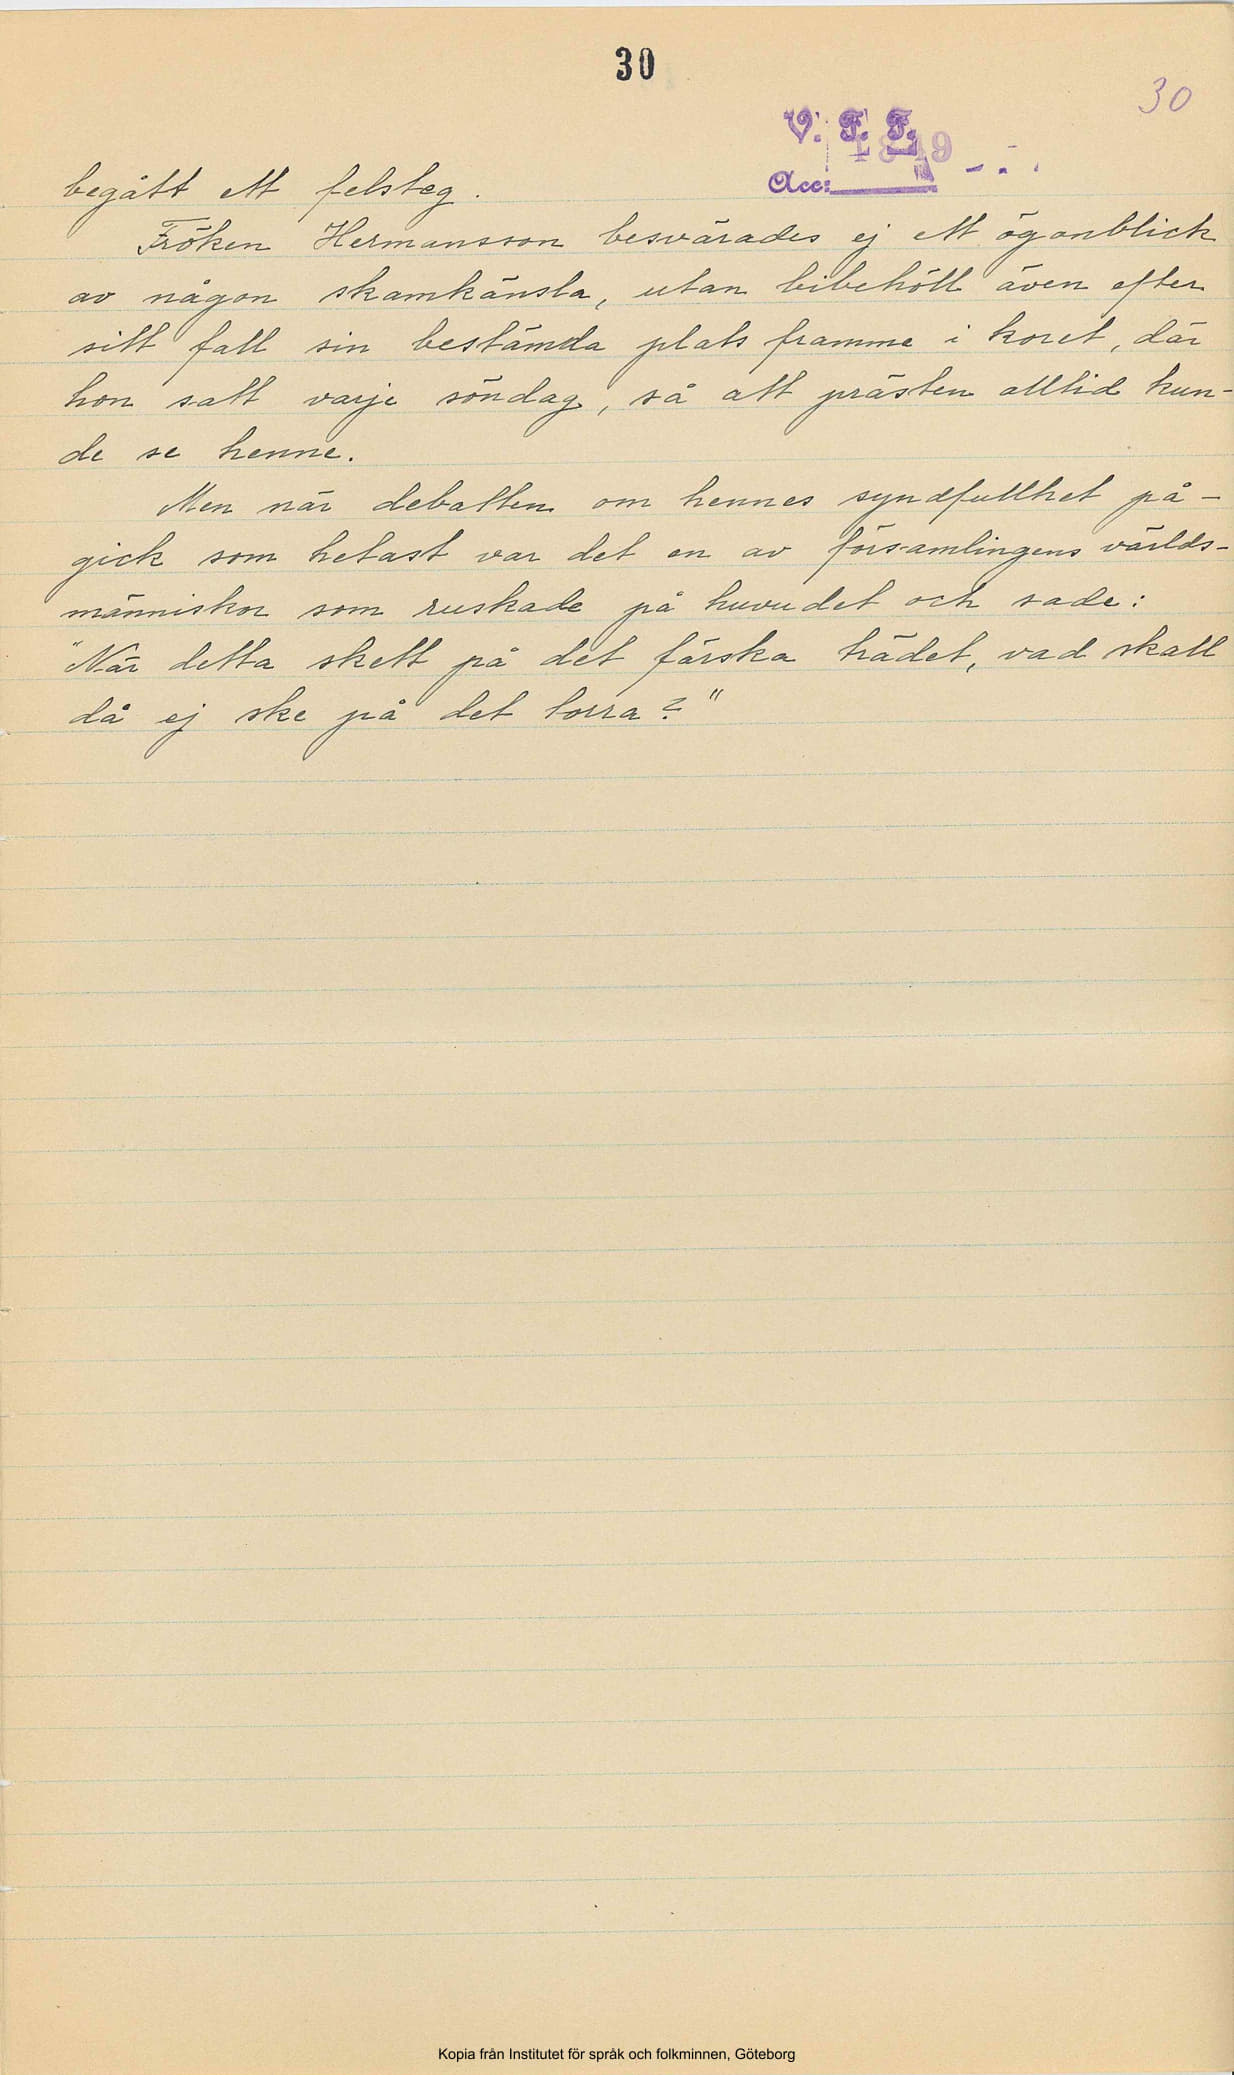 30
30
V. F. F.
Acc:
begått ett felsteg.
Fröken Hermansson besvärades ej ett ögonblick
av någon skamkänsla, utan bibehöll även efter
sitt fall sin bestämda plats framme i koret, där
hon satt varje söndag, så att prästen alltid kun-
de se henne.
Men när debatten om hennes syndfullhet på-
gick som hetast var det en av församlingens världs-
människor som ruskade på huvudet och sade:
"När detta skett på det färska trädet, vad skall
då ej ske på det torra?"
Kopia från Institutet för språk och folkminnen, Göteborg